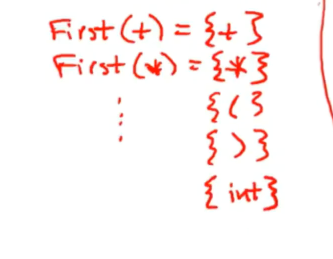 First(+) = {+}
First(*) = {*}
⋮ {(}
{)}
{int}